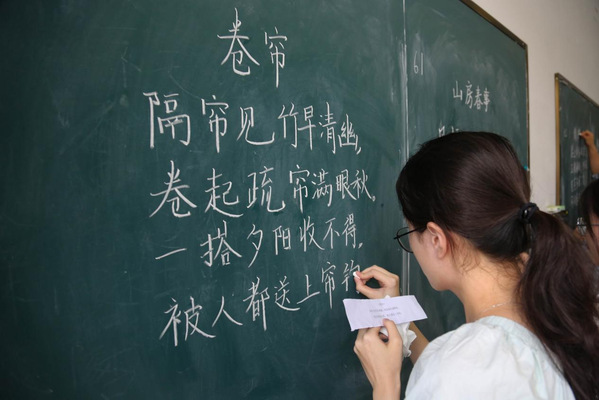 卷帘
隔帘见竹早清幽,
卷起疏帘满眼秋。
一搭夕阳收不得,
被人都送上帘
61
山房春事